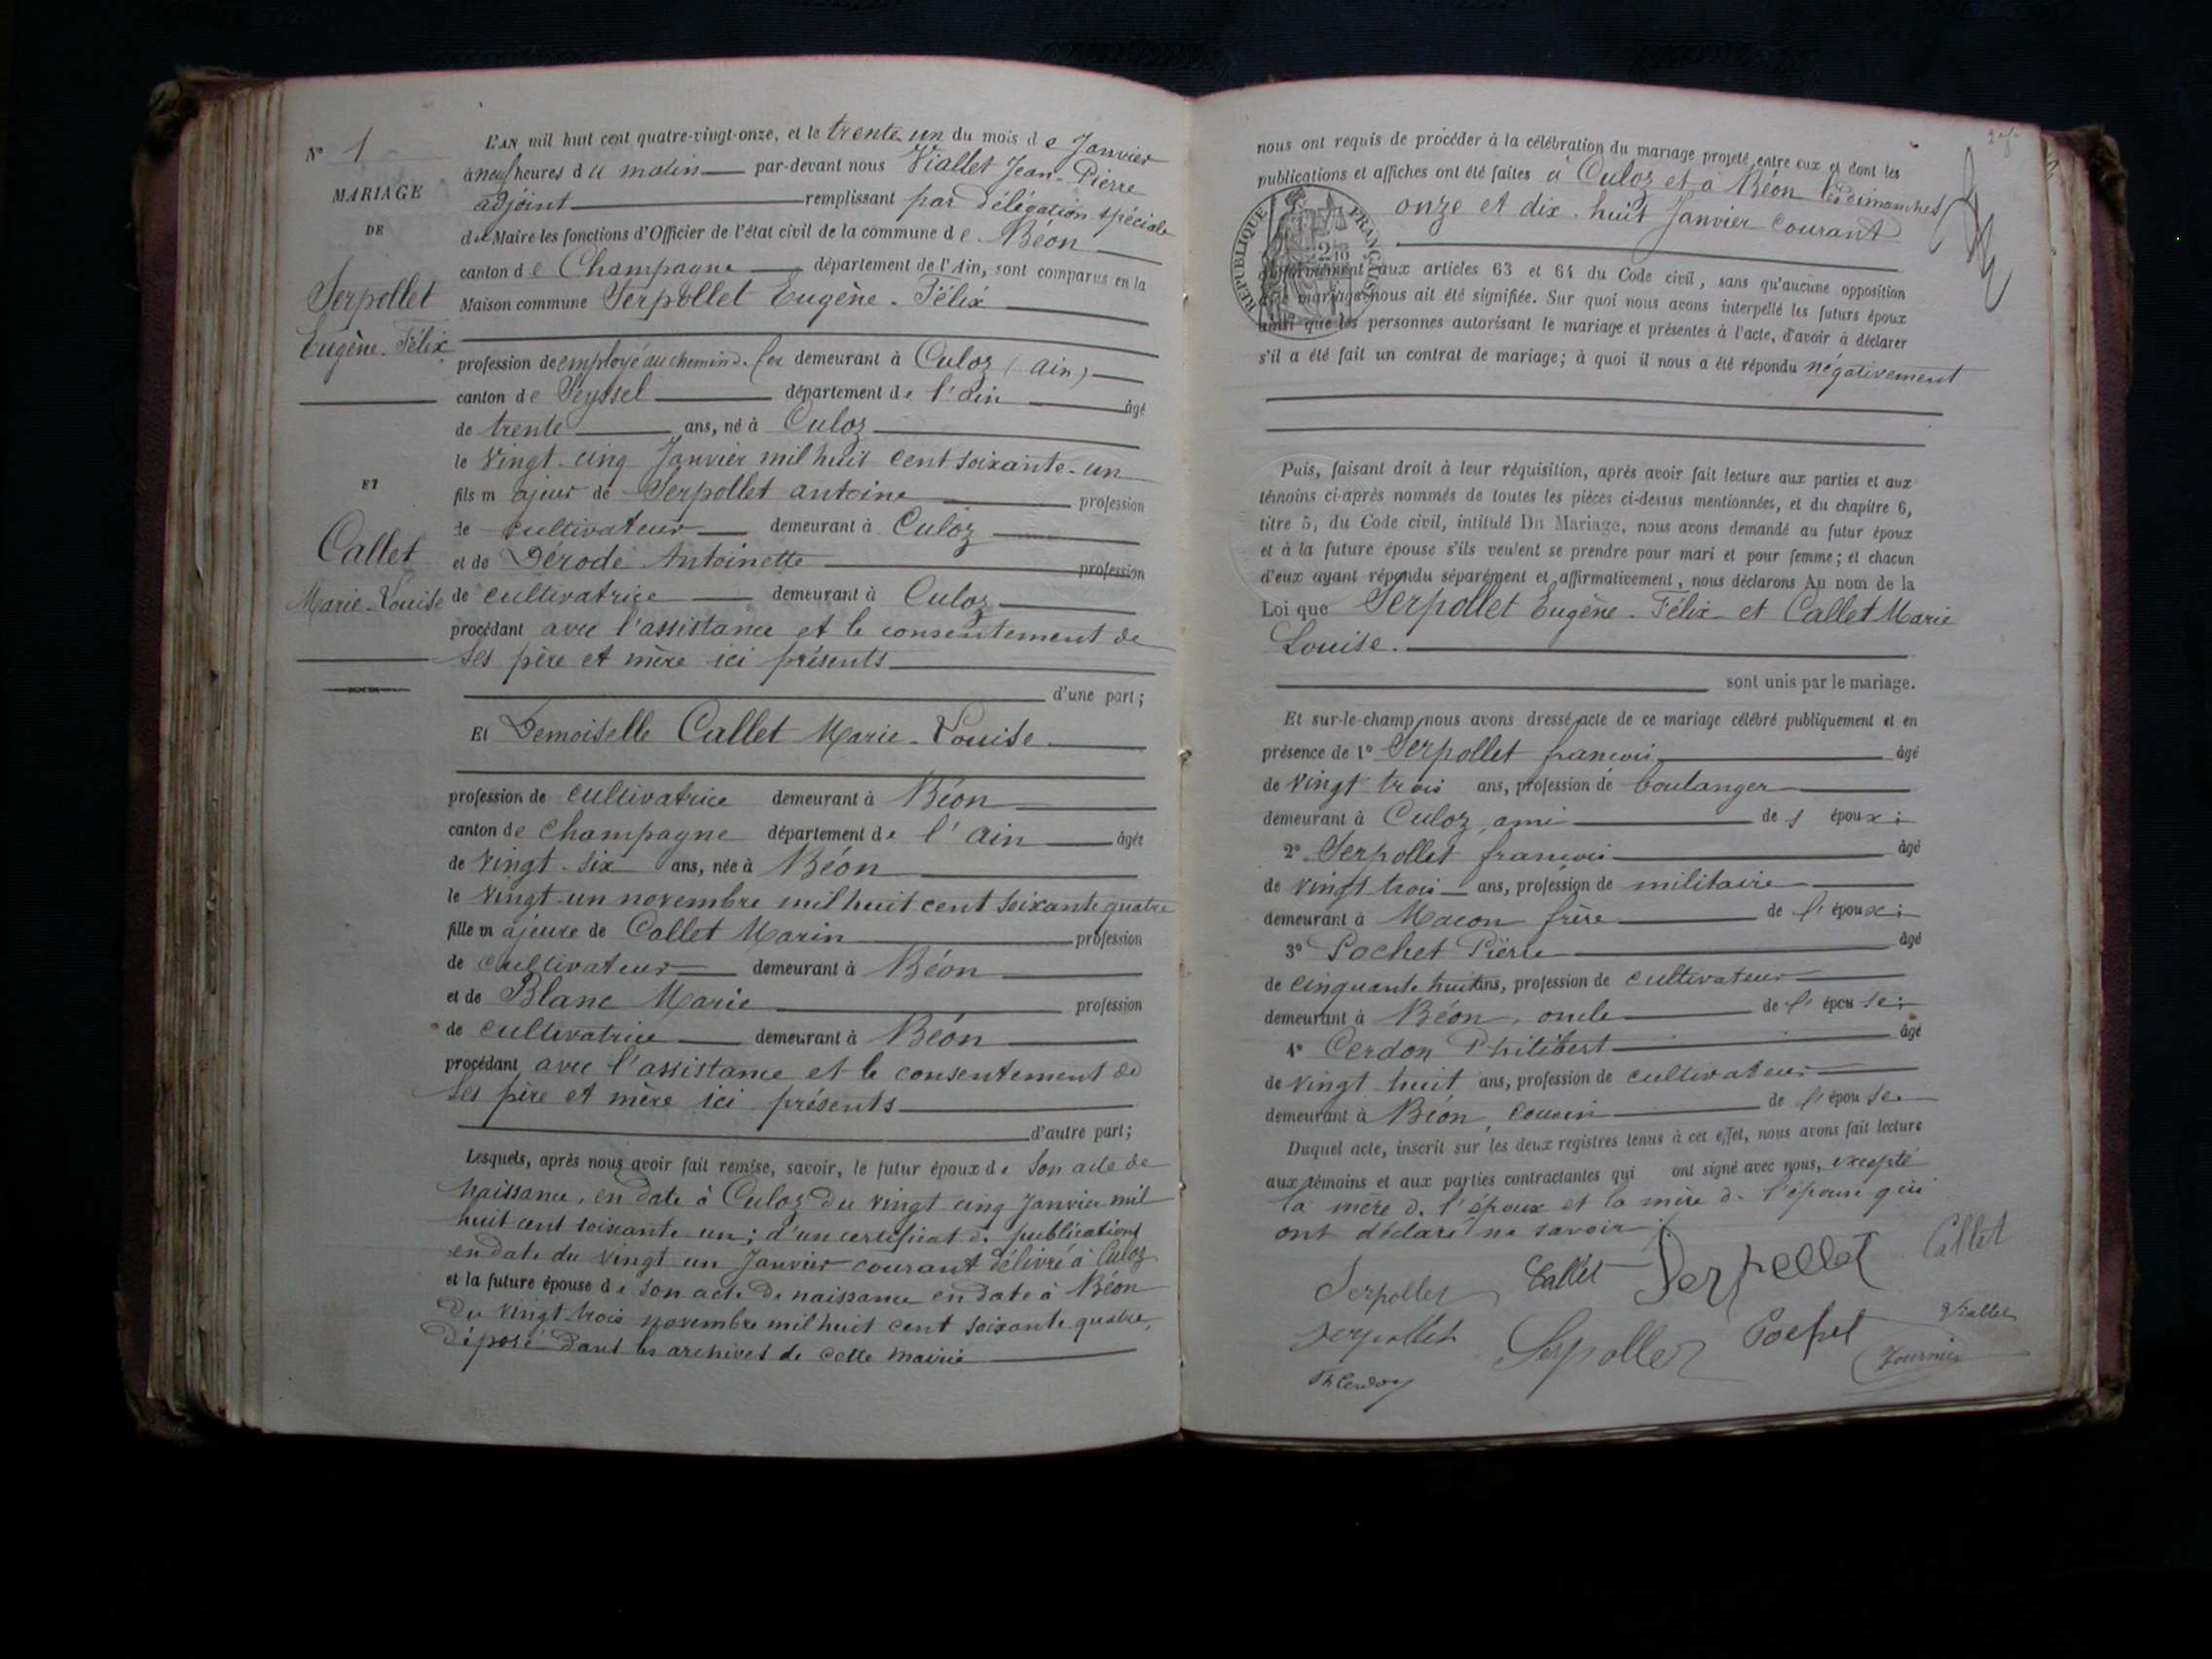 N° 1
MARIAGE
DE
Serpollet
Eugène-Félix
ET
Callet
Marie-Louise
L'AN mil huit cent quatre-vingt-onze, et le trente un du mois de Janvier
à neuf heures du matin par-devant nous Viallet Jean-Pierre
adjoint remplissant par délégation spéciale
du Maire les fonctions d'Officier de l'état civil de la commune de Béon
canton de Champagne département de l'Ain, sont comparus en la
Maison commune Serpollet Eugène-Félix
profession de employé au chemin d. fer demeurant à Culoz (ain)
canton de Seyssel département de l'ain âgé
de trente ans, né à Culoz
le vingt-cinq Janvier mil huit cent soixante-un
fils majeur de Serpollet antoine profession
de cultivateur demeurant à Culoz
et de Dérode Antoinette profession
de cultivatrice demeurant à Culoz
procédant avec l'assistance et le consentement de
ses père et mère ici présents
d'une part;
Et Demoiselle Callet Marie-Louise
profession de cultivatrice demeurant à Béon
canton de Champagne département de l'ain âgée
de vingt-six ans, née à Béon
le vingt-un novembre mil huit cent soixante quatre
fille majeure de Callet Marin profession
de cultivateur demeurant à Béon
et de Blanc Marie profession
de cultivatrice demeurant à Béon
procédant avec l'assistance et le consentement de
ses père et mère ici présents
d'autre part;
Lesquels, après nous avoir fait remise, savoir, le futur époux de son acte de
naissance, en date à Culoz du vingt cinq Janvier mil
huit cent soixante un; d'un certificat de publications
en date du vingt un Janvier courant délivré à Culoz
et la future épouse de son acte de naissance en date à Béon
du vingt trois novembre mil huit cent soixante quatre,
déposé dans les archives de cette mairie
nous ont requis de procéder à la célébration du mariage projeté entre eux et dont les
publications et affiches ont été faites à Culoz et à Béon les dimanches
onze et dix-huit Janvier courant
REPUBLIQUE FRANÇAISE
conformément aux articles 63 et 64 du Code civil, sans qu'aucune opposition
mariage nous ait été signifiée. Sur quoi nous avons interpellé les futurs époux
ainsi que les personnes autorisant le mariage et présentes à l'acte, d'avoir à déclarer
s'il a été fait un contrat de mariage; à quoi il nous a été répondu négativement
Puis, faisant droit à leur réquisition, après avoir fait lecture aux parties et aux
témoins ci-après nommés de toutes les pièces ci-dessus mentionnées, et du chapitre 6,
titre 5, du Code civil, intitulé Du Mariage, nous avons demandé au futur époux
et à la future épouse s'ils veulent se prendre pour mari et pour femme; et chacun
d'eux ayant répondu séparément et affirmativement, nous déclarons Au nom de la
Loi que Serpollet Eugène-Félix et Callet Marie
Louise.
sont unis par le mariage.
Et sur-le-champ nous avons dressé acte de ce mariage célébré publiquement et en
présence de 1° Serpollet francois âgé
de vingt trois ans, profession de boulanger
demeurant à Culoz, ami des époux;
2° Serpollet francois âgé
de vingt trois ans, profession de militaire
demeurant à Macon frère de l'époux;
3° Pochet Pierre âgé
de cinquante huit ans, profession de cultivateur
demeurant à Béon, oncle de l'épouse;
4° Cerdon Philibert âgé
de vingt huit ans, profession de cultivateur
demeurant à Béon, cousin de l'épouse
Duquel acte, inscrit sur les deux registres tenus à cet effet, nous avons fait lecture
aux témoins et aux parties contractantes qui ont signé avec nous, excepté
la mère de l'époux et la mère de l'épouse qui
ont déclaré ne savoir.
Serpollet Callet Serpollet Callet
Serpollet Serpollet Pochet Viallet
Ph Cerdon Fournier